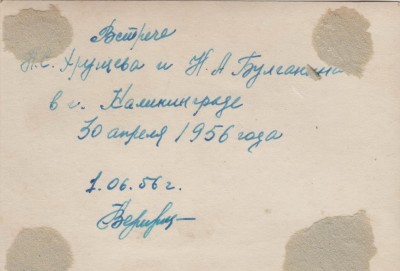 Встреча
Н.С. Хрущева и Н.А Булганина
в г. Калининграде
30 апреля 1956 года
1.06.56 г.